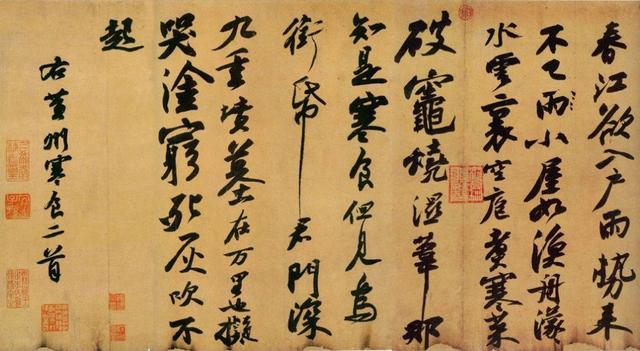 春江欲入戶雨勢来
不已雨小屋如漁舟濛々
水雲裏空庖煑寒菜
破竈燒濕葦那
知是寒食但見烏
銜帋君門深
九重墳墓在万里也擬
哭塗窮死灰吹不
起
右黄州寒食二首